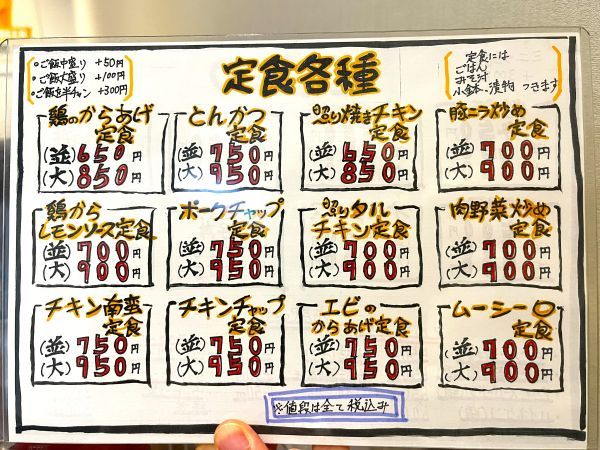 ・ご飯中盛り +50円
・ご飯大盛り +100円
・ご飯を半チャン +300円
定食各種
定食には
ごはん
みそ汁
小鉢、漬物 つきます
鶏のからあげ
定食
(並)650円
(大)850円
とんかつ
定食
(並)750円
(大)950円
照り焼きチキン
定食
(並)650円
(大)850円
豚ニラ炒め
定食
(並)700円
(大)900円
鶏から
レモンソース定食
(並)700円
(大)900円
ポークチャップ
定食
(並)750円
(大)950円
照りタル
チキン定食
(並)700円
(大)900円
肉野菜炒め
定食
(並)700円
(大)900円
チキン南蛮
定食
(並)750円
(大)950円
チキンチャップ
定食
(並)750円
(大)950円
エビの
からあげ定食
(並)750円
(大)950円
ムーシーロ
定食
(並)700円
(大)900円
※値段は全て税込み